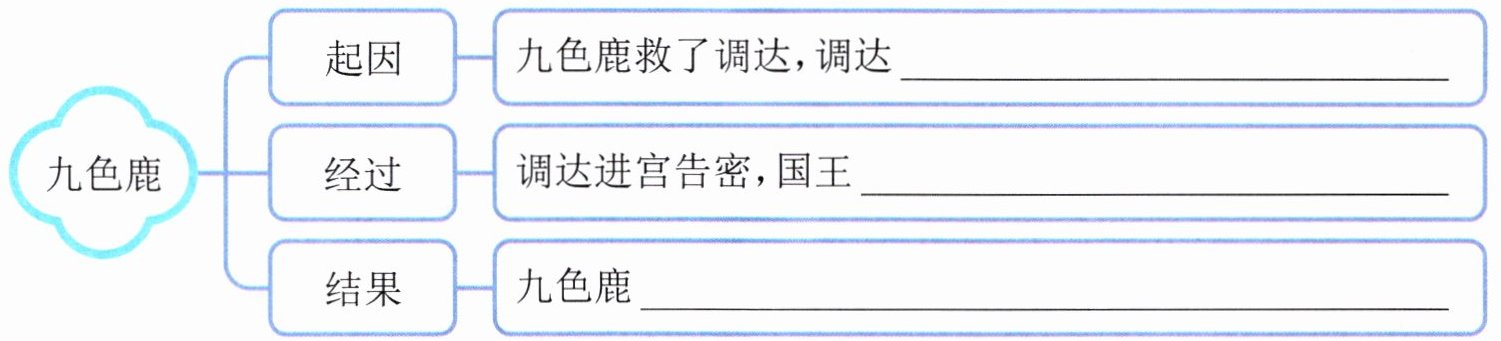 九色鹿
起因
九色鹿救了调达，调达
经过
调达进宫告密，国王
结果
九色鹿